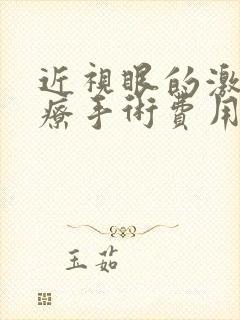 近視眼的激
療手術費用
玉茹